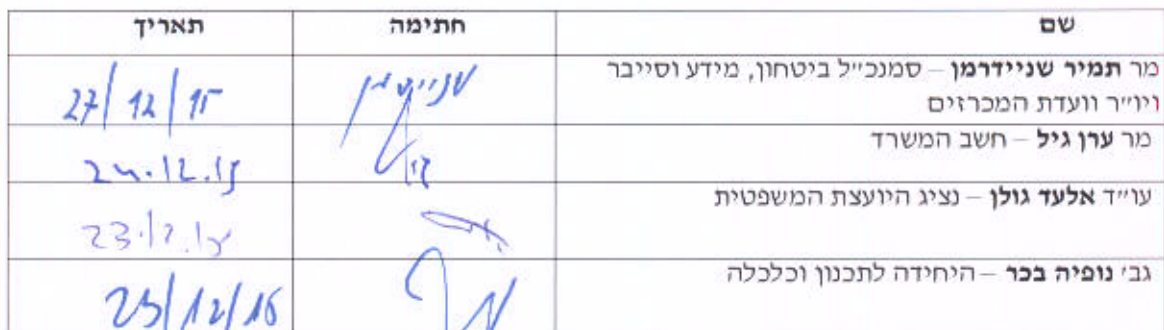 שם חתימה תאריך
מר תמיר שניידרמן – סמנכ״ל ביטחון, מידע וסייבר
ויו״ר וועדת המכרזים 27/12/15
מר ערן גיל – חשב המשרד 24.12.15
עו״ד אלעד גולן – נציג היועצת המשפטית
23.12.15
גב׳ נופיה בכר – היחידה לתכנון וכלכלה
23/12/15